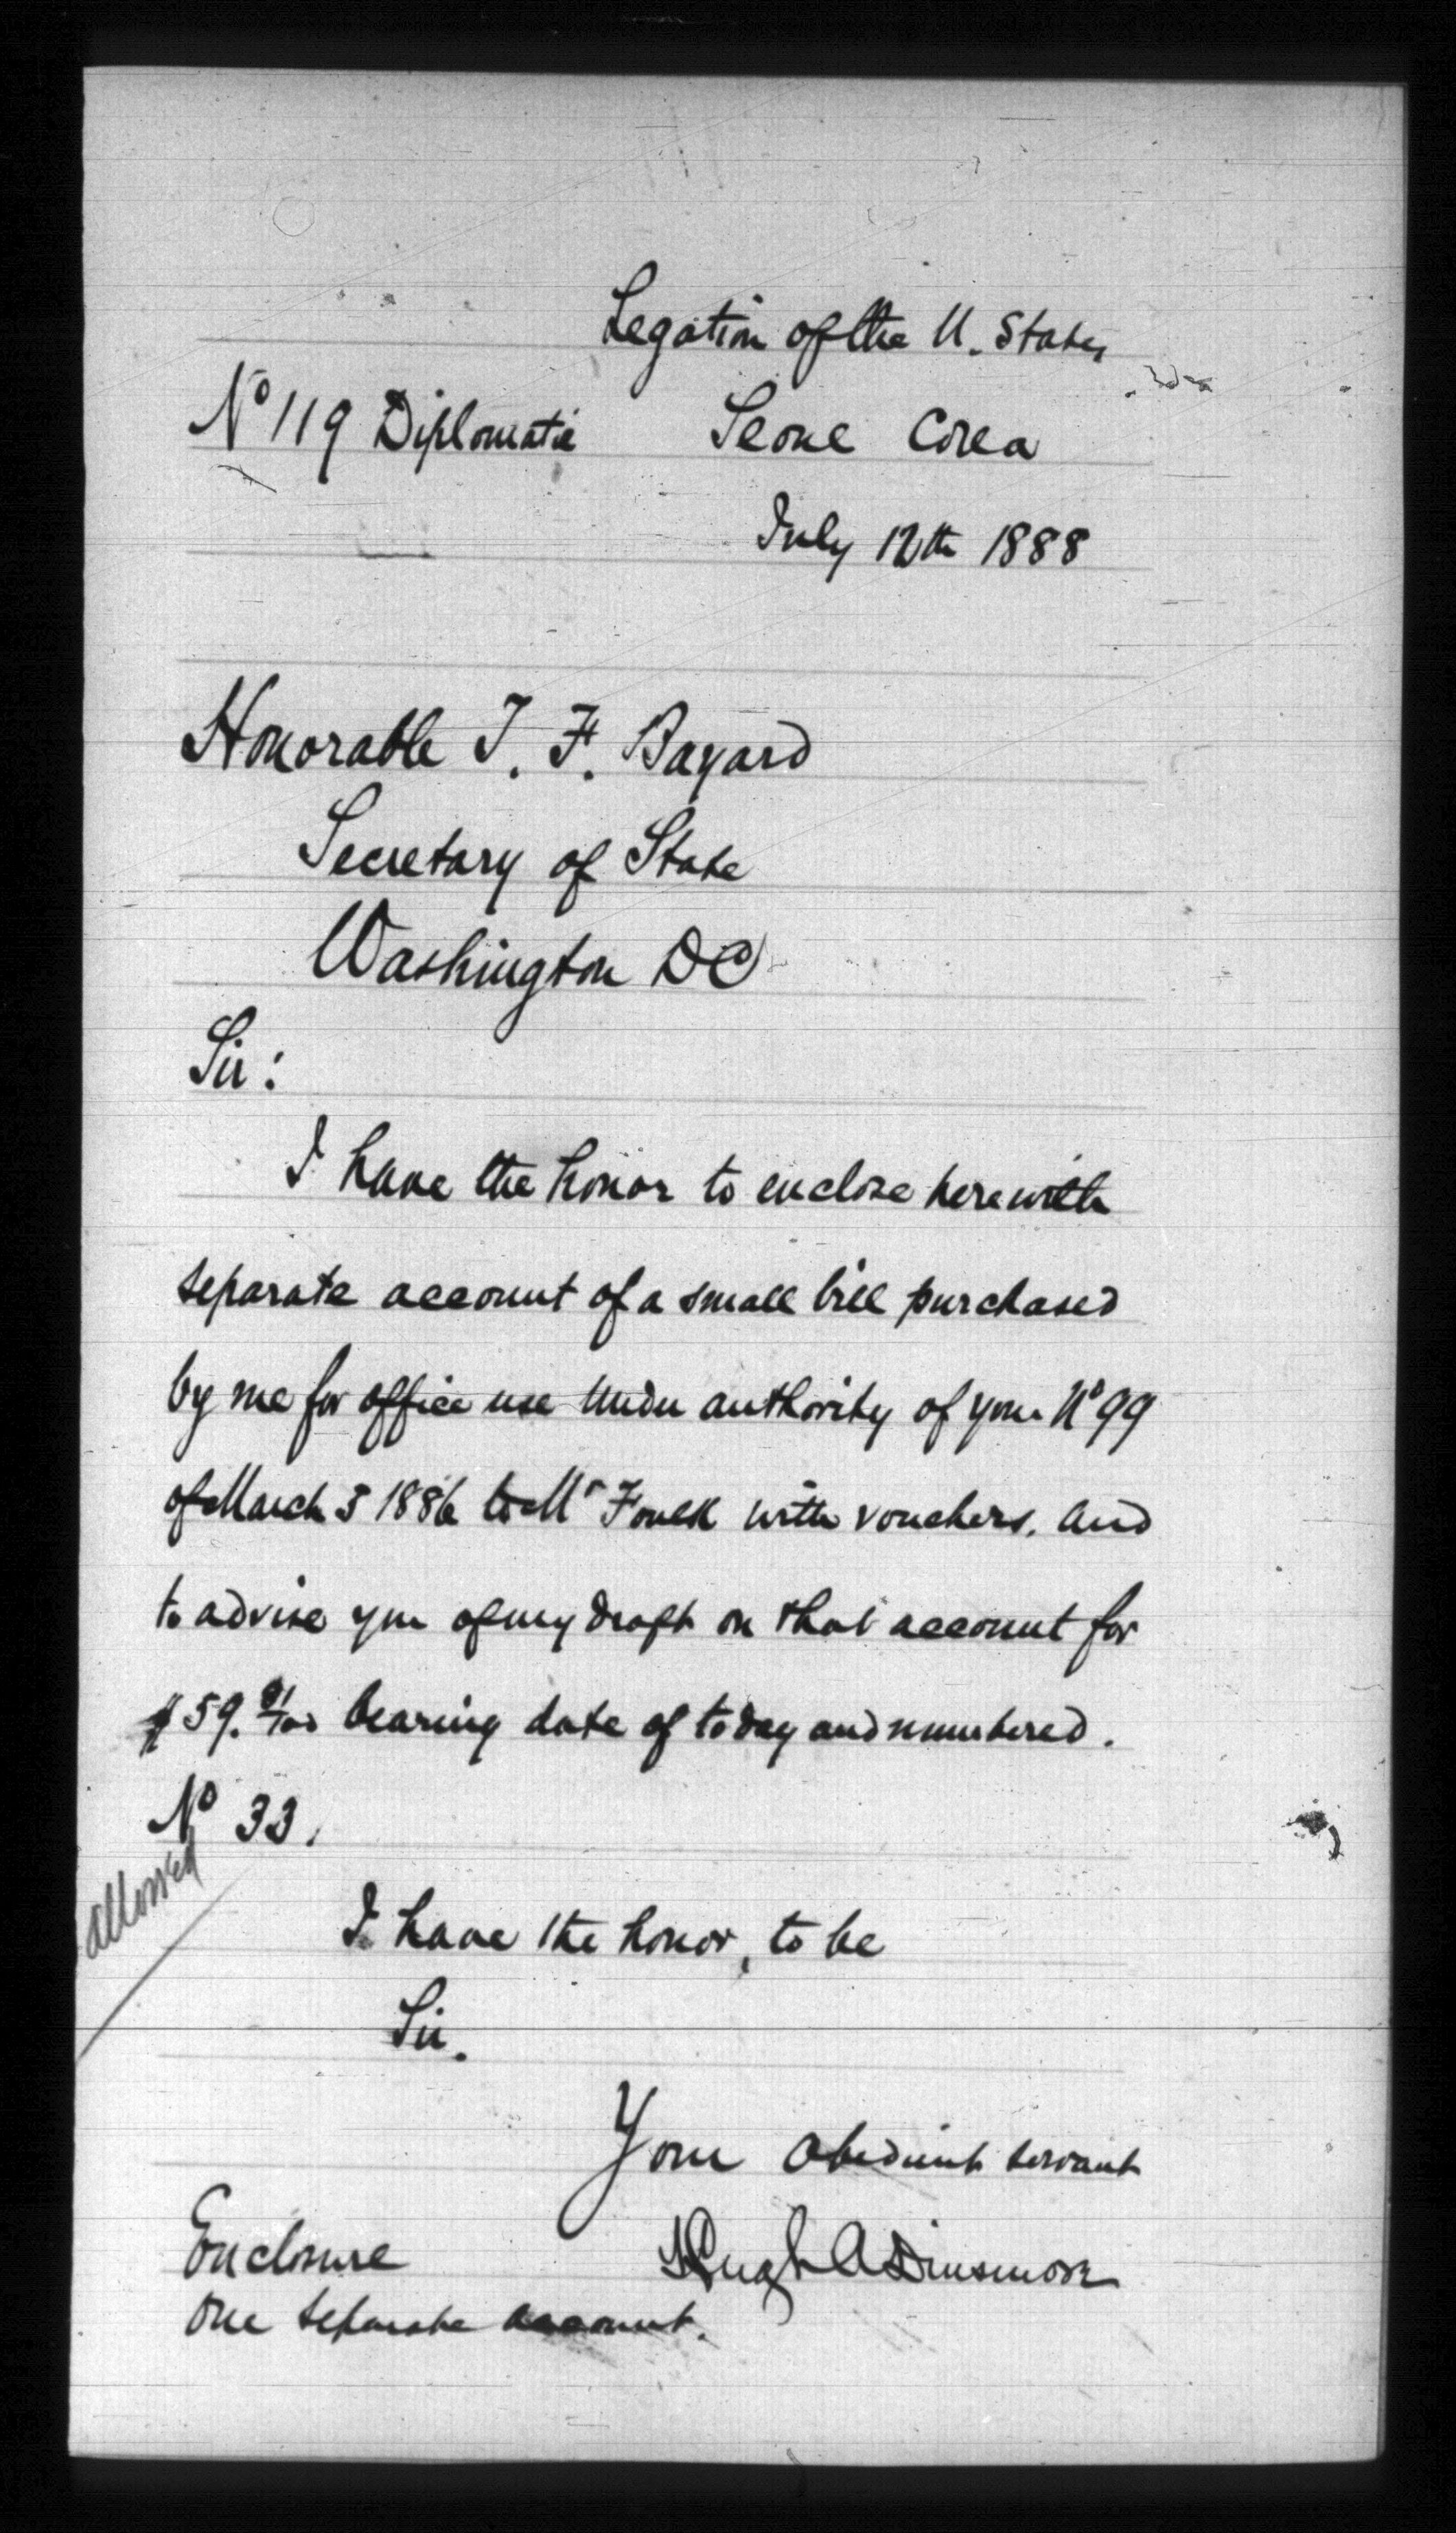 Legation of the U. States
No 119 Diplomatic Seoul Corea
July 12th 1888
Honorable T. F. Bayard
Secretary of State
Washington DC
Sir:
I have the honor to enclose herewith
separate account of a small bill purchased
by me for office use under authority of your No 99
of March 3 1886 to Mr Foulk with vouchers. and
to advise you of my draft on that account for
$59. /100 bearing date of today and numbered.
No 33.
allowed
I have the honor, to be
Sir.
Your obedient servant
Hugh A Dinsmore
Enclosure
One separate account.